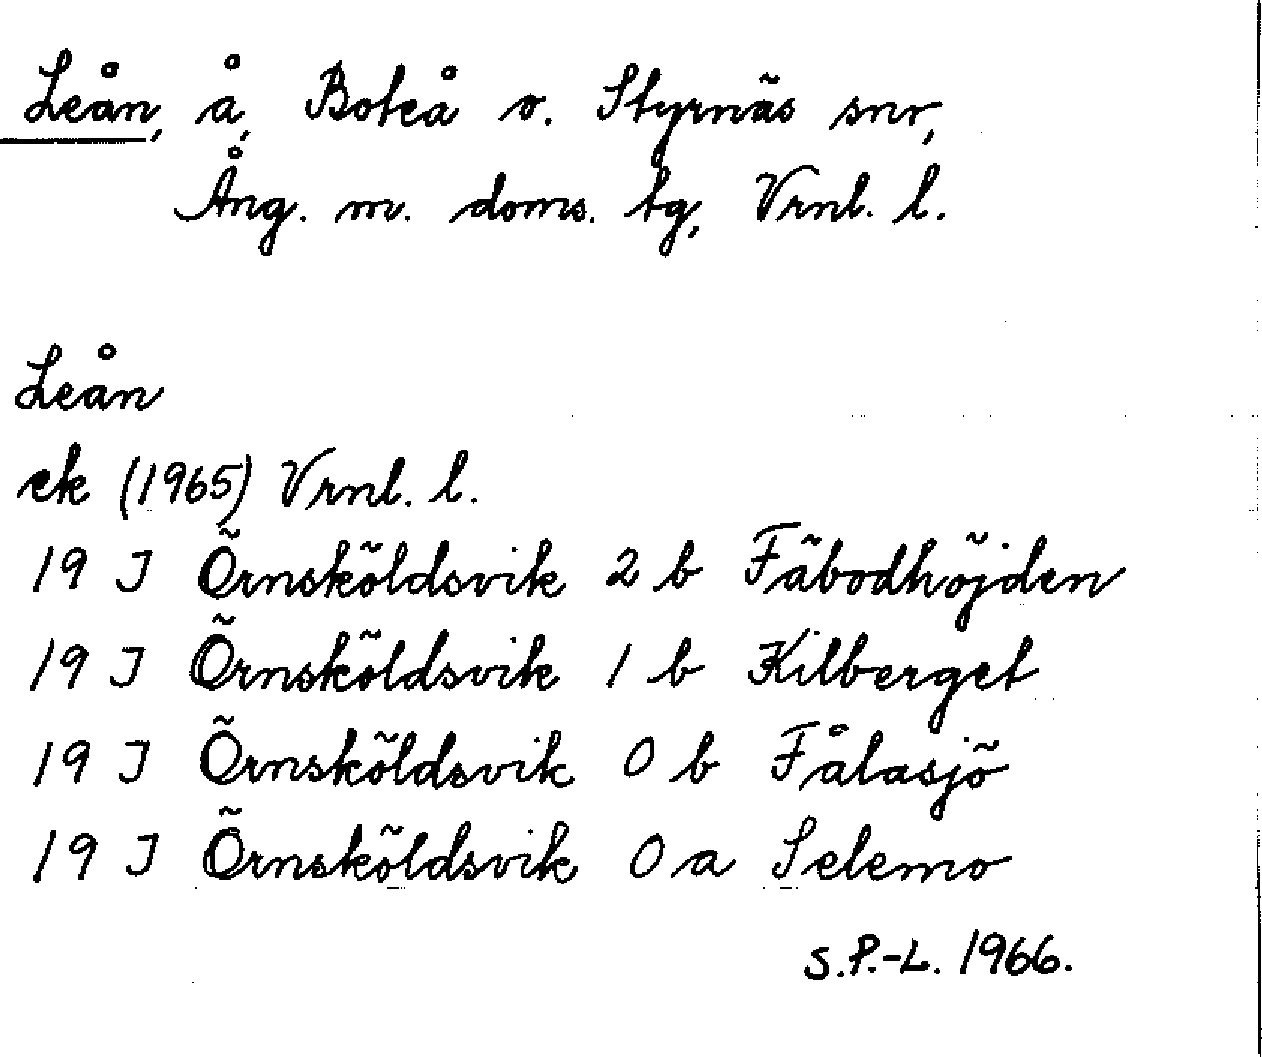 Leån, å, Boteå o. Styrnäs snr,
Ång. m. doms. tg, Vrnl. l.
Leån
ek (1965) Vrnl. l.
19 J Örnsköldsvik 2 b Fäbodhöjden
19 J Örnsköldsvik 1 b Kilberget
19 J Örnsköldsvik 0 b Fålasjö
19 J Örnsköldsvik 0 a Selemo
S.P.-L. 1966.